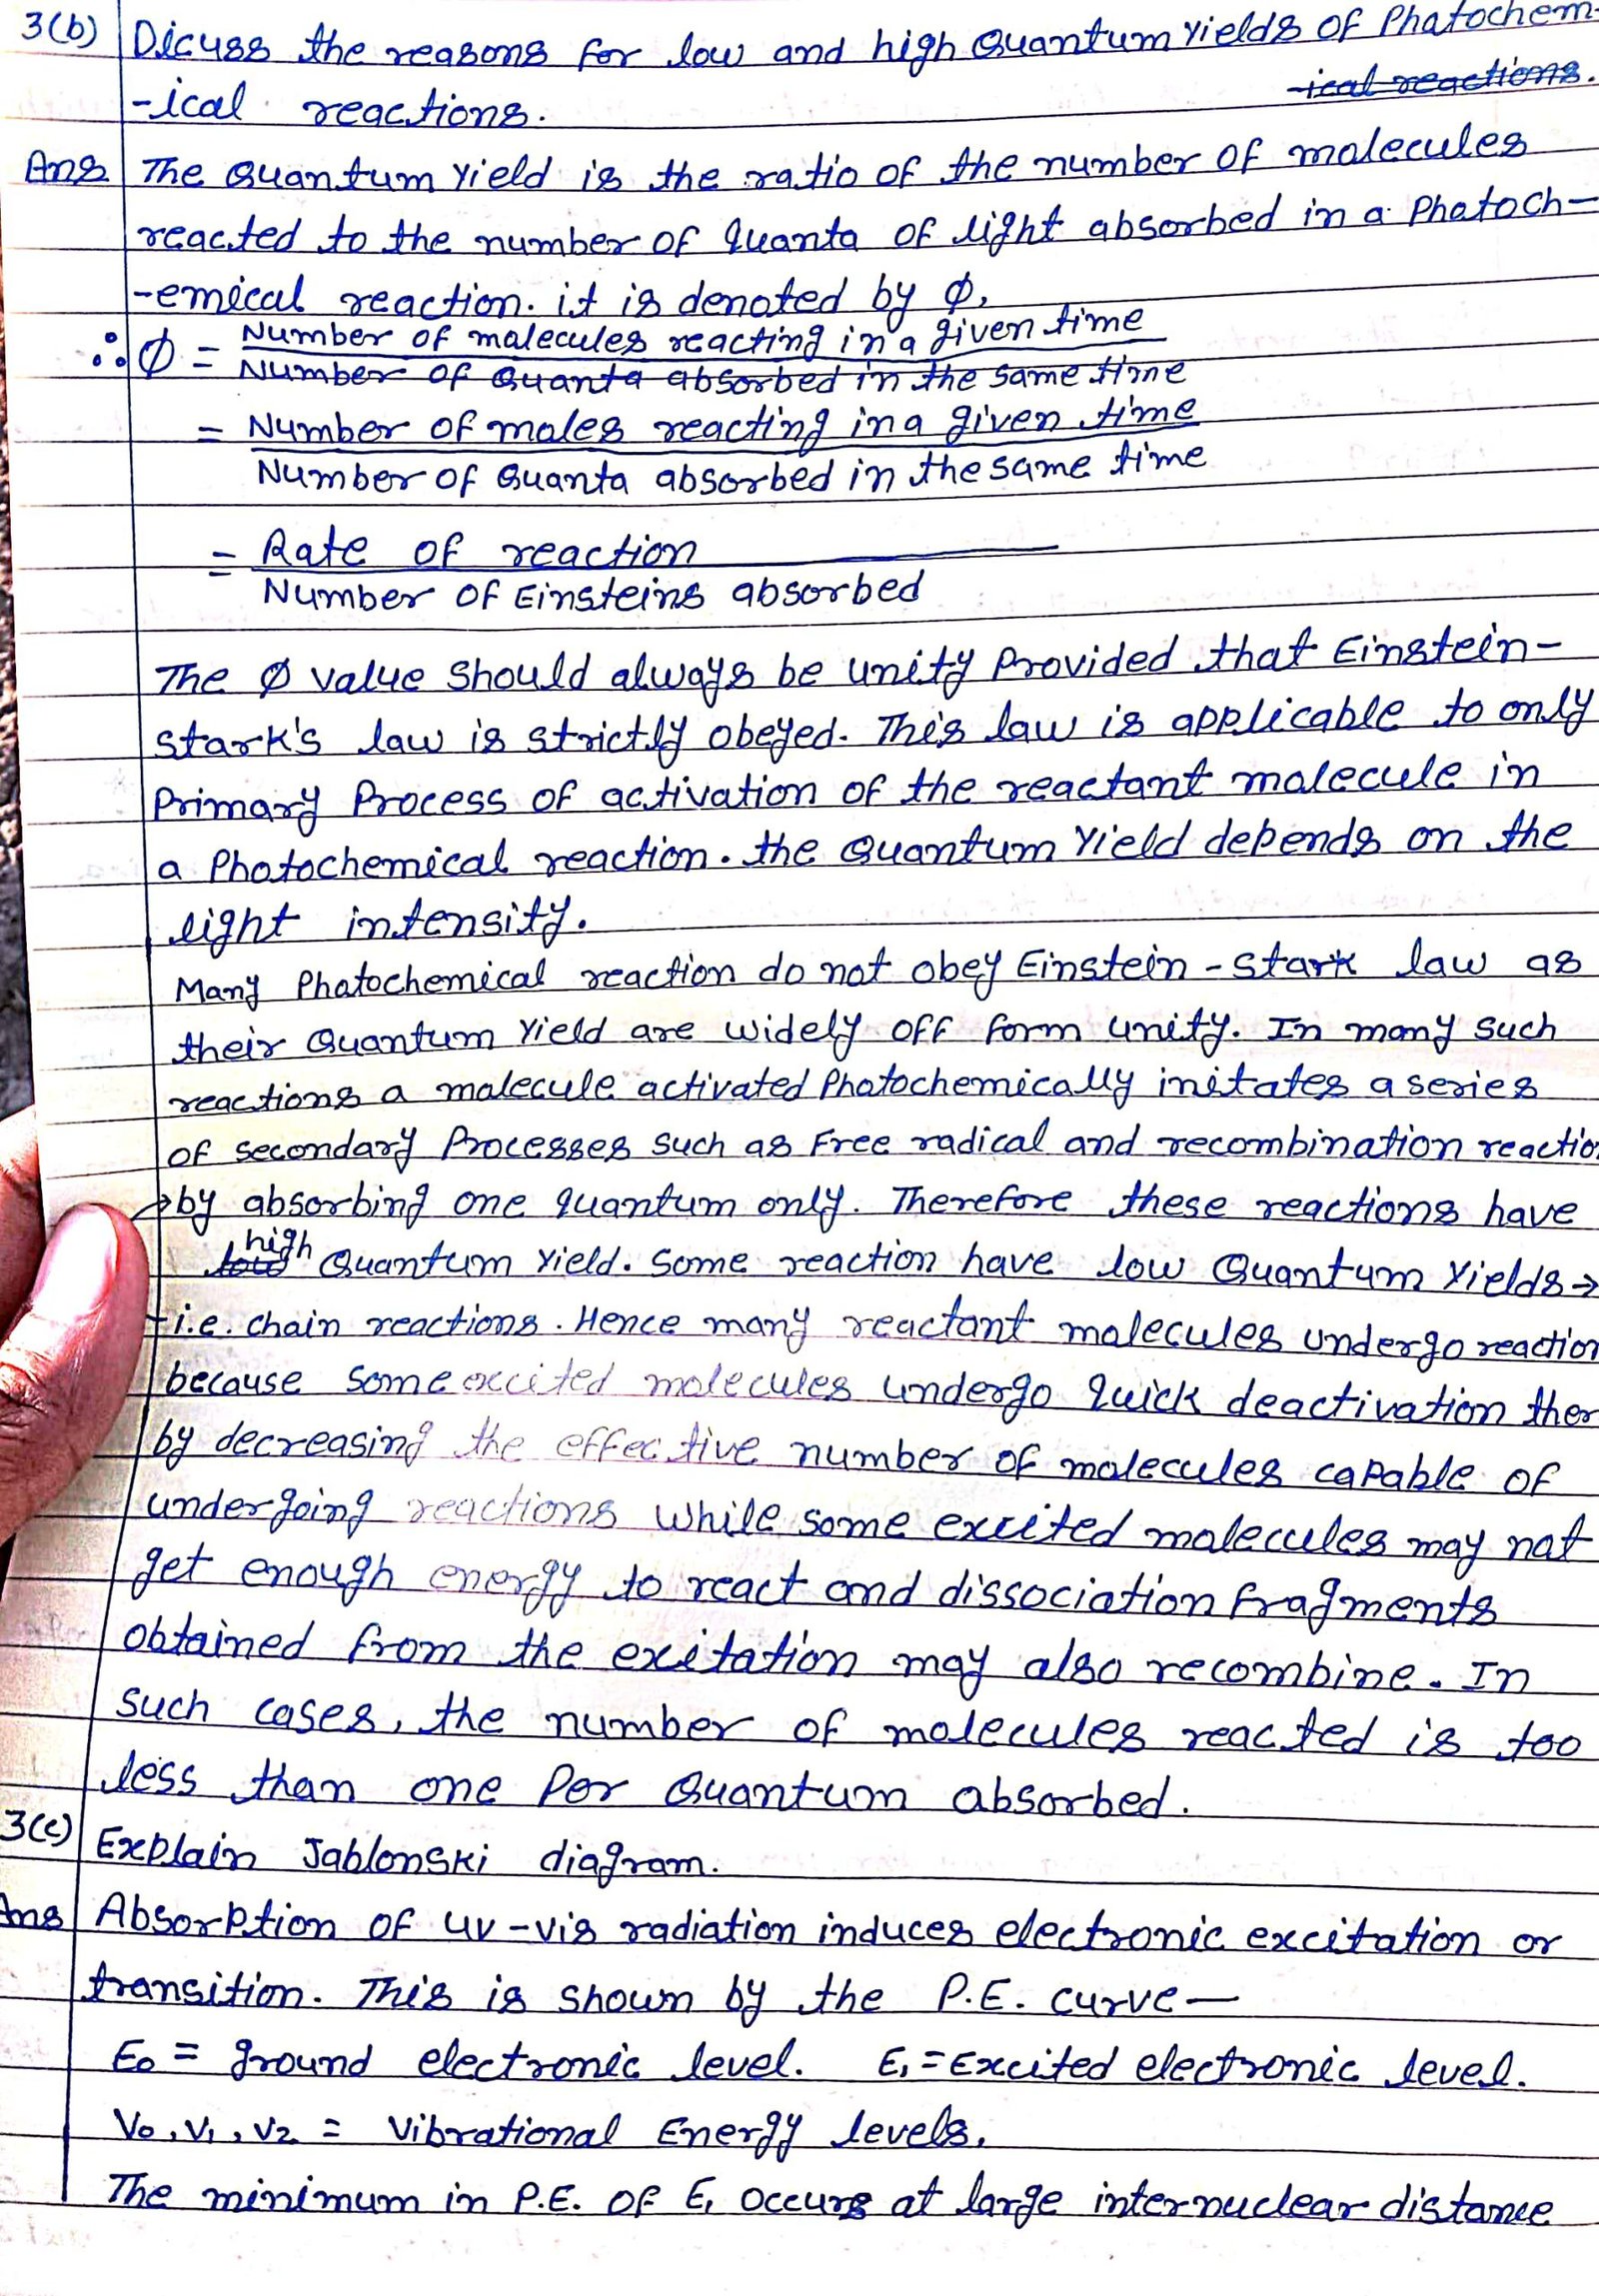 3(b) Dicuss the reasons for low and high Quantum Yields of Phatochem-
-ical reactions.
-ical reactions.
Ans. The Quantum Yield is the ratio of the number of molecules
reacted to the number of quanta of light absorbed in a Phatoch-
-emical reaction. it is denoted by ϕ,
∴ ϕ = Number of molecules reacting in a given time
Number of Quanta absorbed in the same time
= Number of moles reacting in a given time
Number of Quanta absorbed in the same time
= Rate of reaction
Number of Einsteins absorbed
The ϕ value should always be unity Provided that Einstein-
stark's law is strictly obeyed. This law is applicable to only
Primary Process of activation of the reactant molecule in
a Photochemical reaction. the Quantum Yield depends on the
light intensity.
Many Phatochemical reaction do not obey Einstein - stark law as
their Quantum Yield are widely off form unity. In many such
reactions a molecule activated Photochemically initates a series
of secondary Processes such as Free radical and recombination reactio
→by absorbing one quantum only. Therefore these reactions have
low high Quantum Yield. Some reaction have low Quantum Yields→
i.e. chain reactions. Hence many reactant molecules undergo reaction
because some excited molecules undergo quick deactivation ther
by decreasing the effective number of molecules capable of
undergoing reactions while some excited molecules may not
get enough energy to react and dissociation fragments
obtained from the excitation may also recombine. In
such cases, the number of molecules reacted is too
less than one Per Quantum absorbed.
3(c) Explain Jablonski diagram.
Ans Absorption of uv-vis radiation induces electronic excitation or
transition. This is shown by the P.E. curve—
E₀ = ground electronic level. E₁ = Excited electronic level.
V₀, V₁, V₂ = Vibrational Energy levels.
The minimum in P.E. of E₁ occurs at large internuclear distance